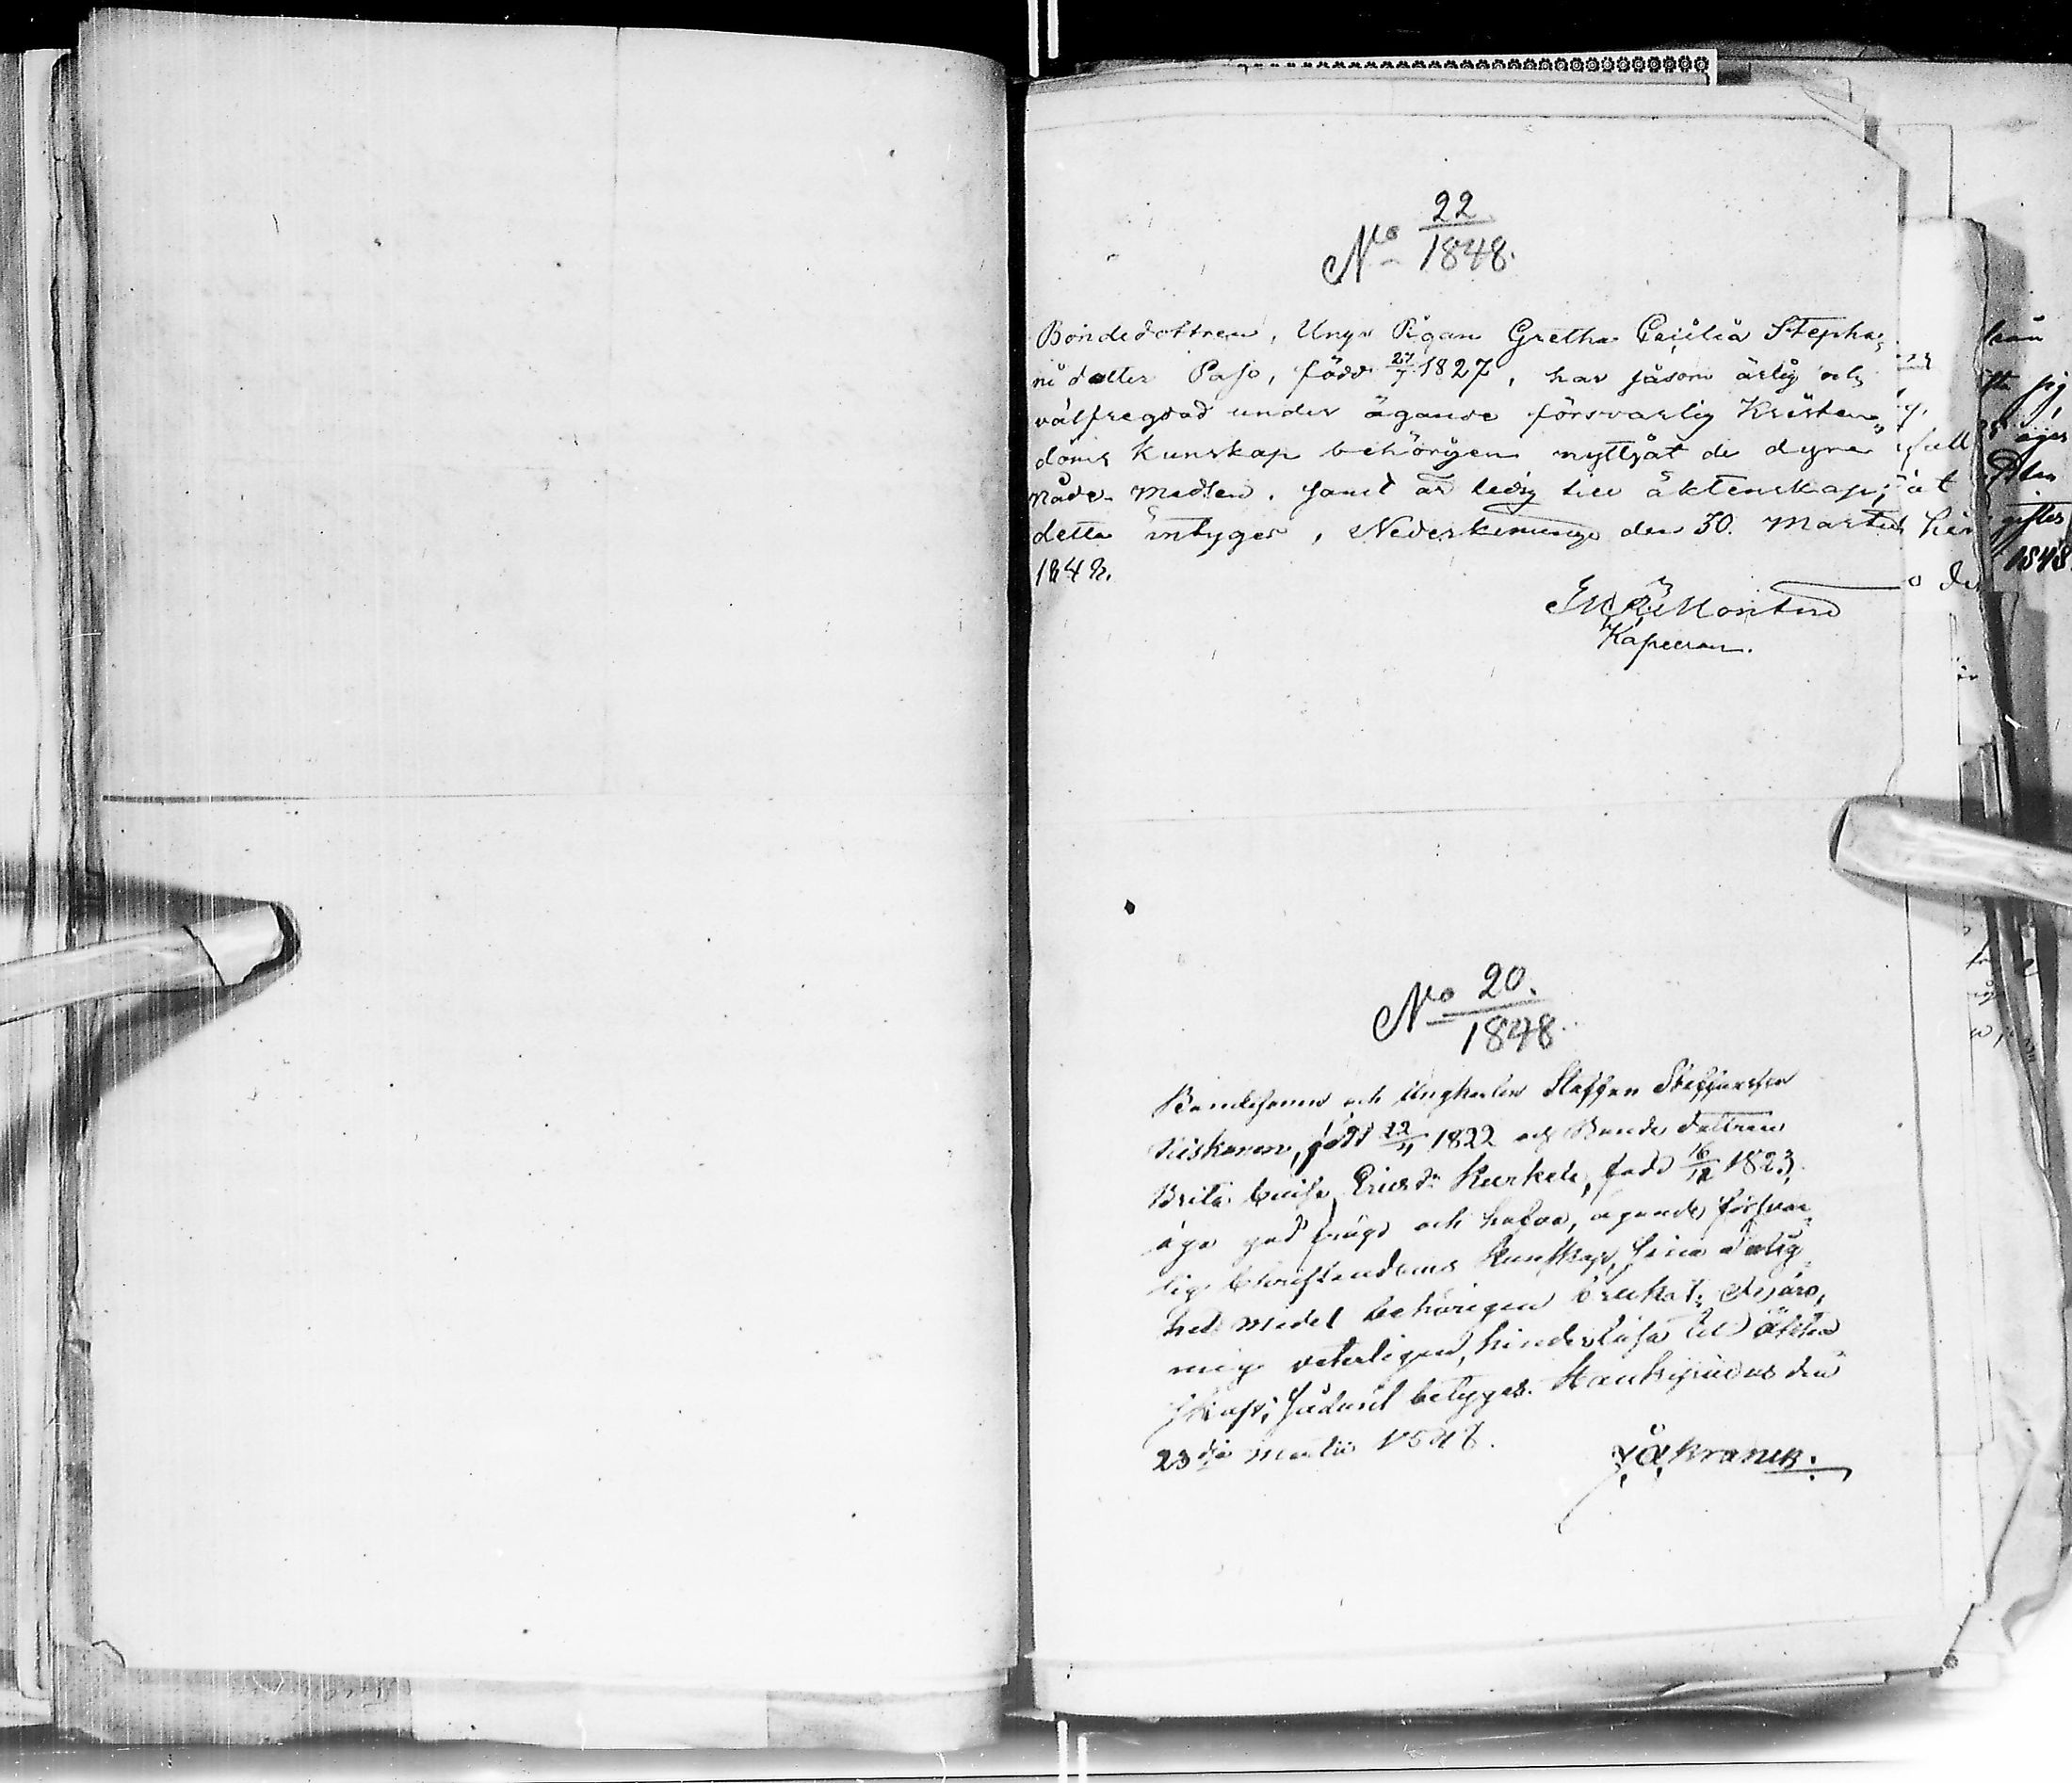 22
No 1848.
Bondedottren, Unga Pigan Gretha Cecilia Stepha=
ni dotter Paso, född 27/7 1827, har såsom ärlig och
välfregdad under ägande försvarlig Kristen=
doms Kunskap behörigen nyttjat de dyra
Nåde-Medlen, samt är ledig till äktenskap;
detta intygar, Nederkemunge den 30. Martii
1848.
Kapellan.
No 20.
1848.
Bondesonen och Ungkarlen Staffan Staffansson
Kiiskinen, född 22/11 1822 och Bonde dottren
Brita Caisa Ericsdr Kurkela, född 16/12 1823,
äga god frägd och hafva, ägande försvar=
lig Christendoms Kunskap, sina Salig=
hets medel behörigen brukat; De äro,
mig veterligen, hinderlösa till äkten
skap; Sådant betygas. Haukipudas den
23dje Martii 1848.